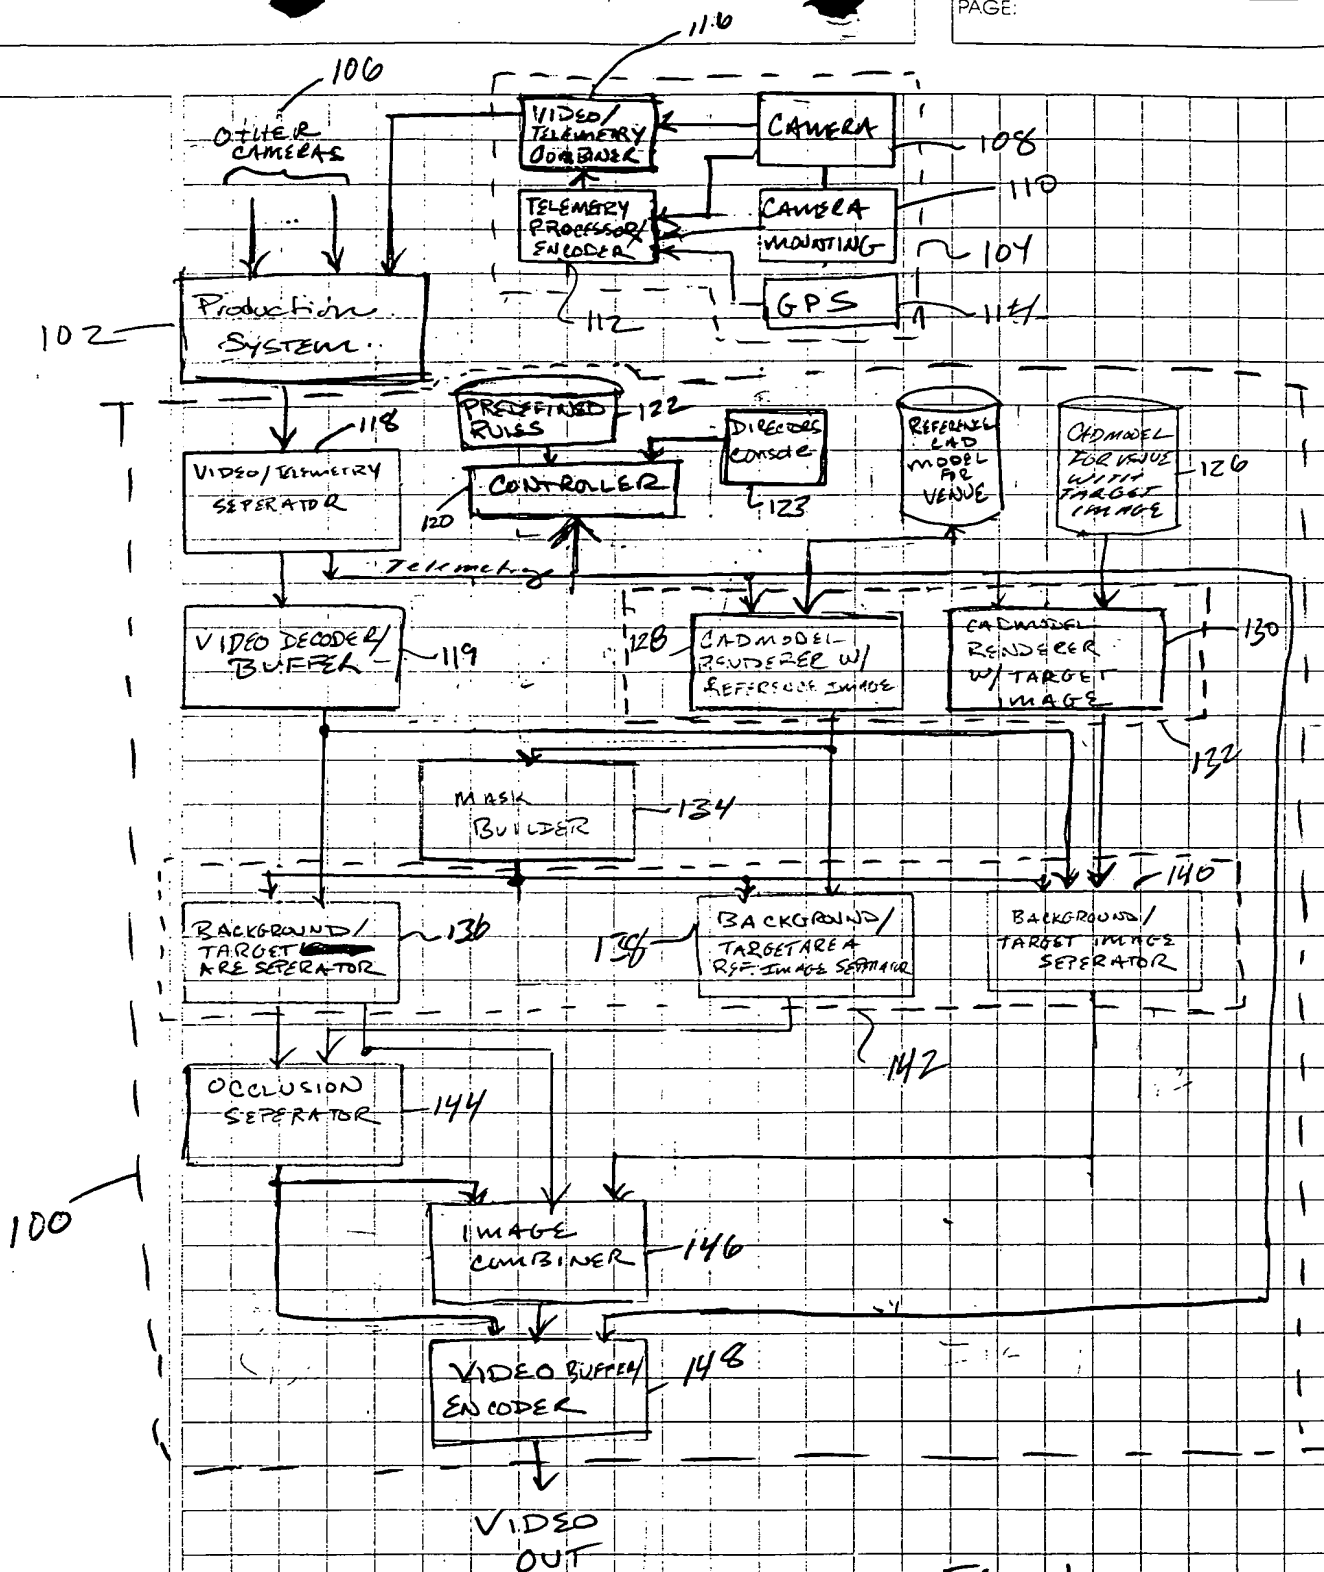 PAGE:
116
106
OTHER
CAMERAS
...
VIDEO/
TELEMETRY
COMBINER
CAMERA
108
110
TELEMETRY
PROCESSOR/
ENCODER
CAMERA
MOUNTING
104
112
GPS
114
102
Production
SYSTEM
118
PREDEFINED
RULES
122
DIRECTORS
console
123
REFERENCE
CAD
MODEL
FOR
VENUE
CADMODEL
FOR VENUE
WITH
TARGET
IMAGE
126
VIDEO/TELEMETRY
SEPERATOR
CONTROLLER
120
Telemetry
VIDEO DECODER/
BUFFER
119
128
CADMODEL
RENDERER W/
REFERENCE IMAGE
CADMODEL
RENDERER
W/TARGET
IMAGE
130
132
MASK
BUILDER
134
140
BACKGROUND/
TARGET
ARE SEPERATOR
136
138
BACKGROUND/
TARGET AREA
REF IMAGE SEPERATOR
BACKGROUND/
TARGET IMAGE
SEPERATOR
142
OCCLUSION
SEPERATOR
144
100
IMAGE
COMBINER
146
VIDEO BUFFER/
ENCODER
148
VIDEO
OUT